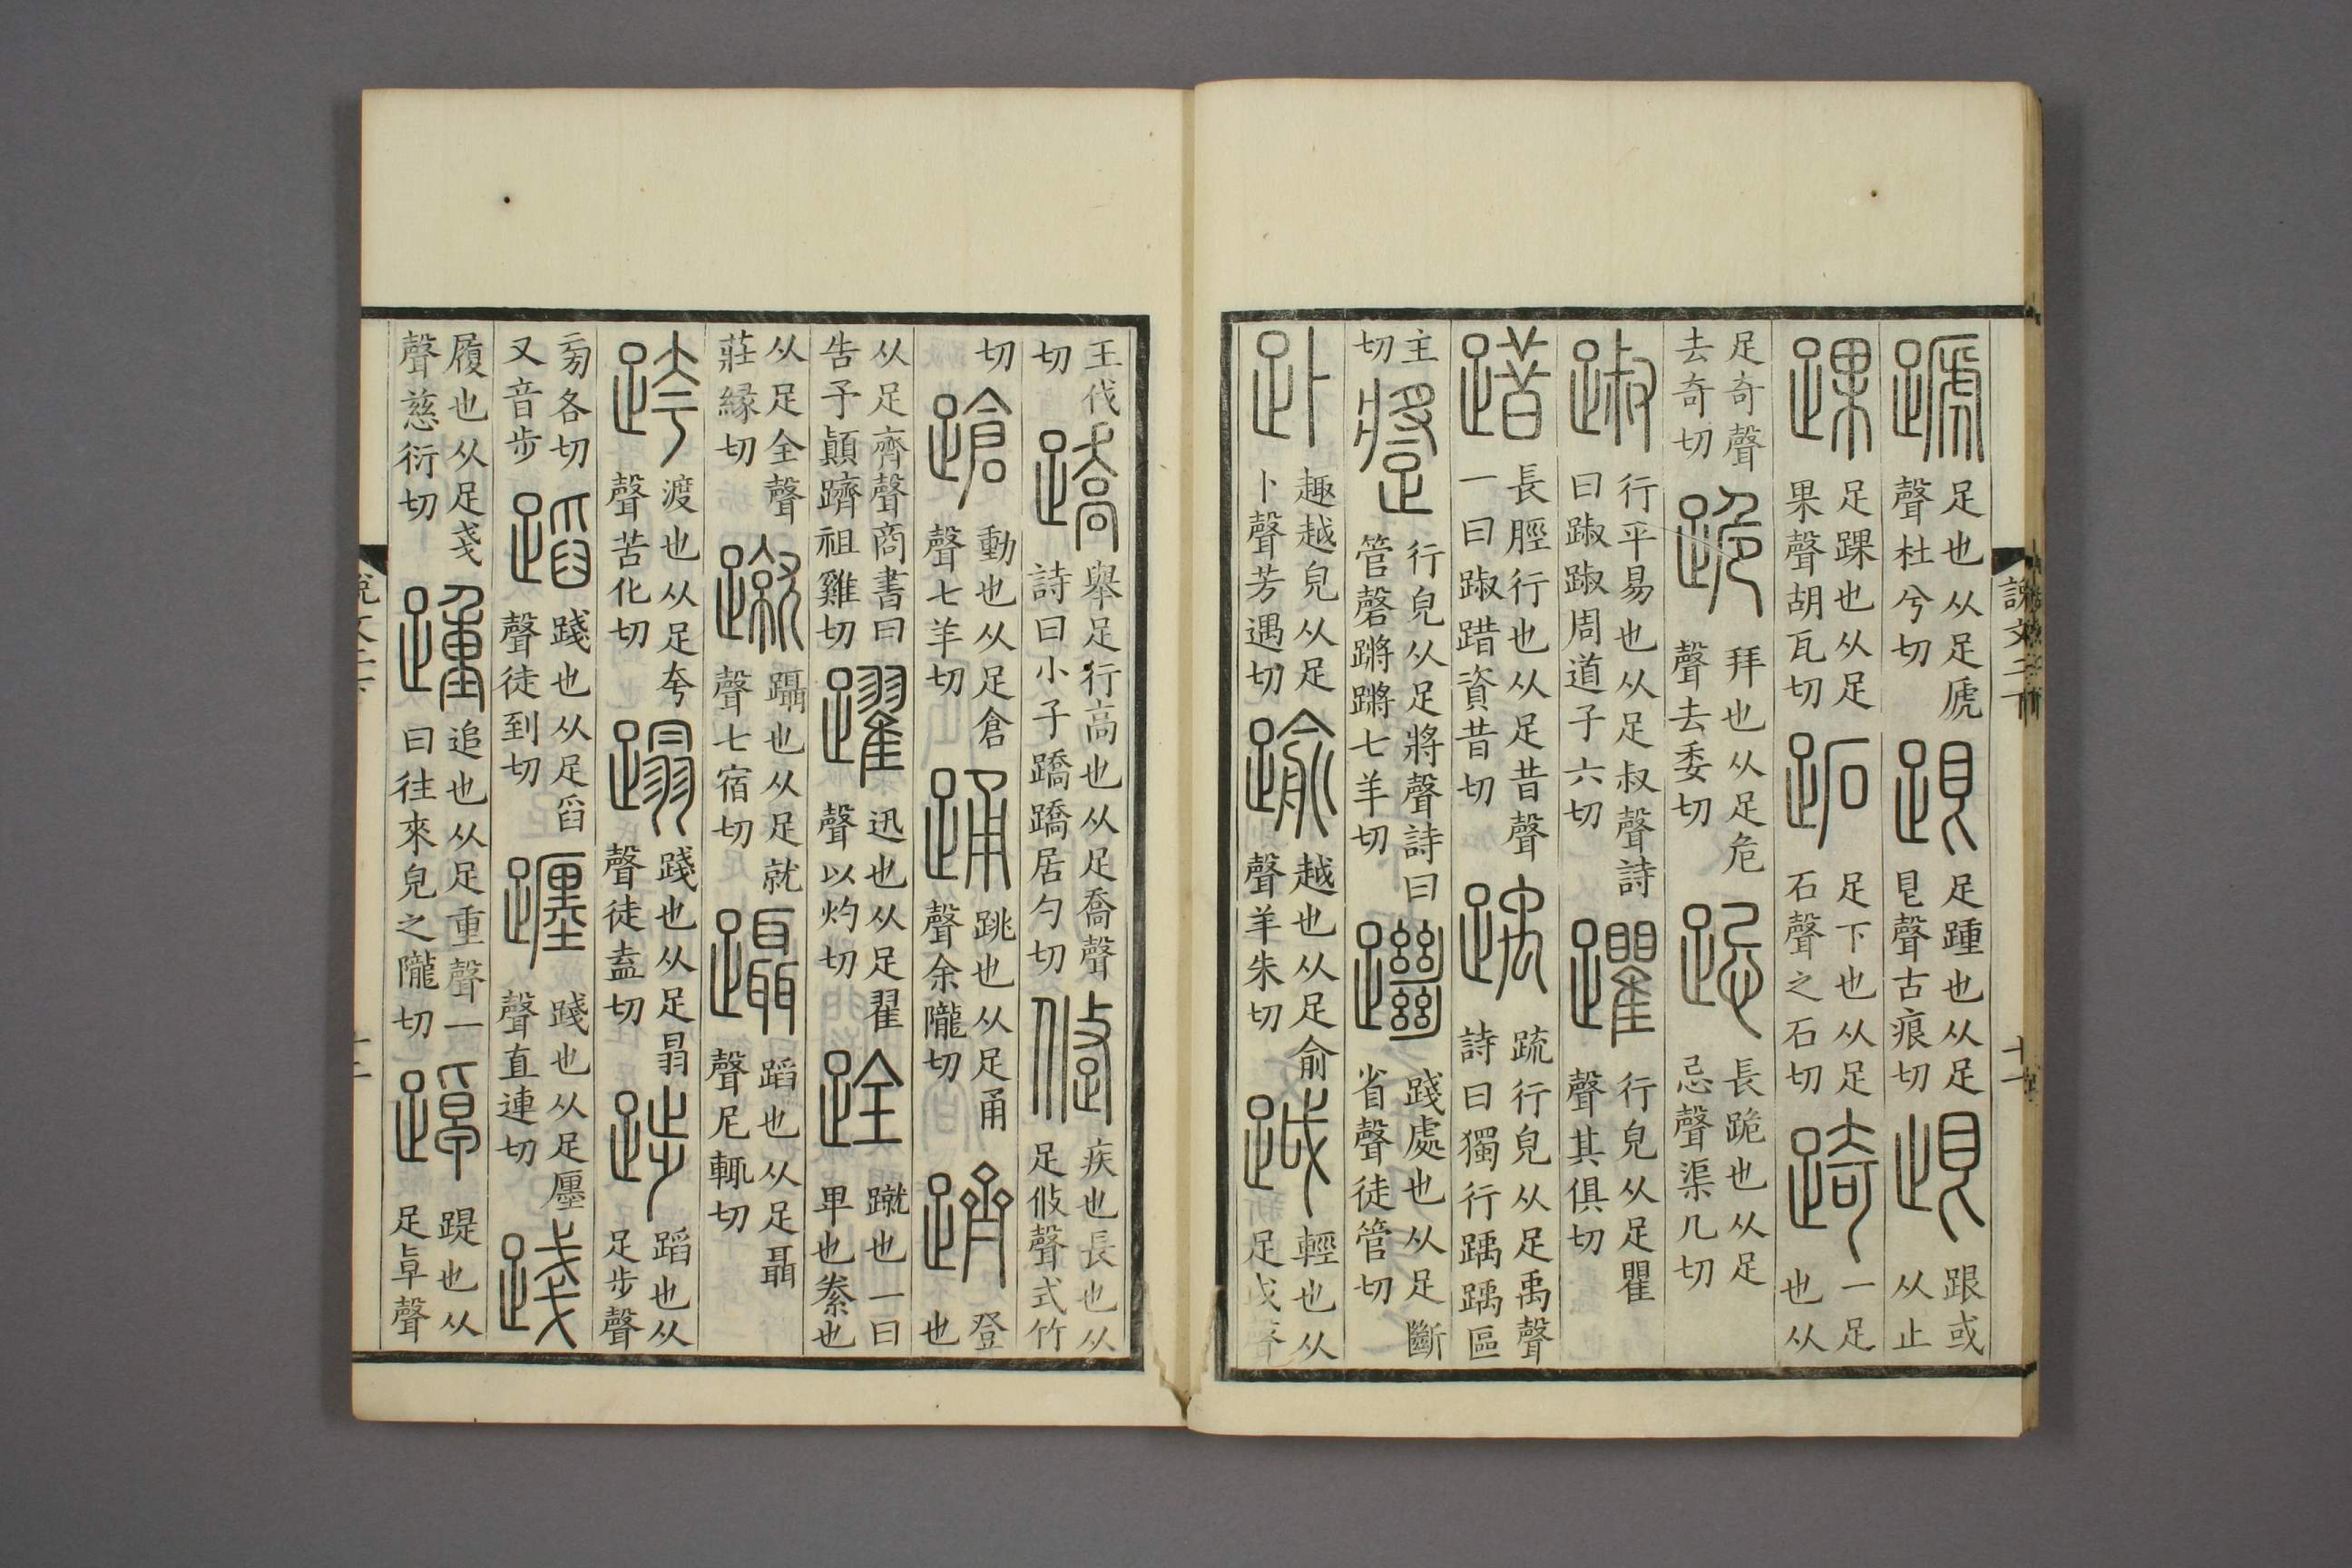 說文二下 十一
蹏 足也从足虒聲杜兮切 跟 足踵也从足艮聲古痕切 䟴 跟或从止
踝 足踝也从足果聲胡瓦切 跖 足下也从足石聲之石切 踦 一足也从
足奇聲去奇切 跪 拜也从足危聲去委切 跽 長跪也从足忌聲渠几切
踧 行平易也从足叔聲詩曰踧踧周道子六切 躣 行皃从足瞿聲其俱切
踖 長脛行也从足昔聲一曰踧踖資昔切 踽 疏行皃从足禹聲詩曰獨行踽踽區
主切 蹡 行皃从足將聲詩曰管磬蹡蹡七羊切 躖 踐處也从足斷省聲徒管切
赴 趣越皃从足卜聲芳遇切 踰 越也从足俞聲羊朱切 䟠 輕也从足戉聲
王伐切 蹻 舉足行高也从足喬聲詩曰小子蹻蹻居勺切 跾 疾也長也从足攸聲式竹
切 蹌 動也从足倉聲七羊切 踊 跳也从足甬聲余隴切 躋 登也
从足齊聲商書曰告予顛躋祖雞切 躍 迅也从足翟聲以灼切 跧 蹴也一曰卑也絭也
从足全聲莊緣切 蹴 躡也从足就聲七宿切 躡 蹈也从足聶聲尼輒切
跨 渡也从足夸聲苦化切 蹋 踐也从足𦐇聲徒盍切 䟺 蹈也从足步聲
旁各切又音步 蹈 踐也从足舀聲徒到切 躔 踐也从足廛聲直連切 踐
履也从足戔聲慈衍切 踵 追也从足重聲一曰往來皃之隴切 踔 踶也从足卓聲
說文二下 十二